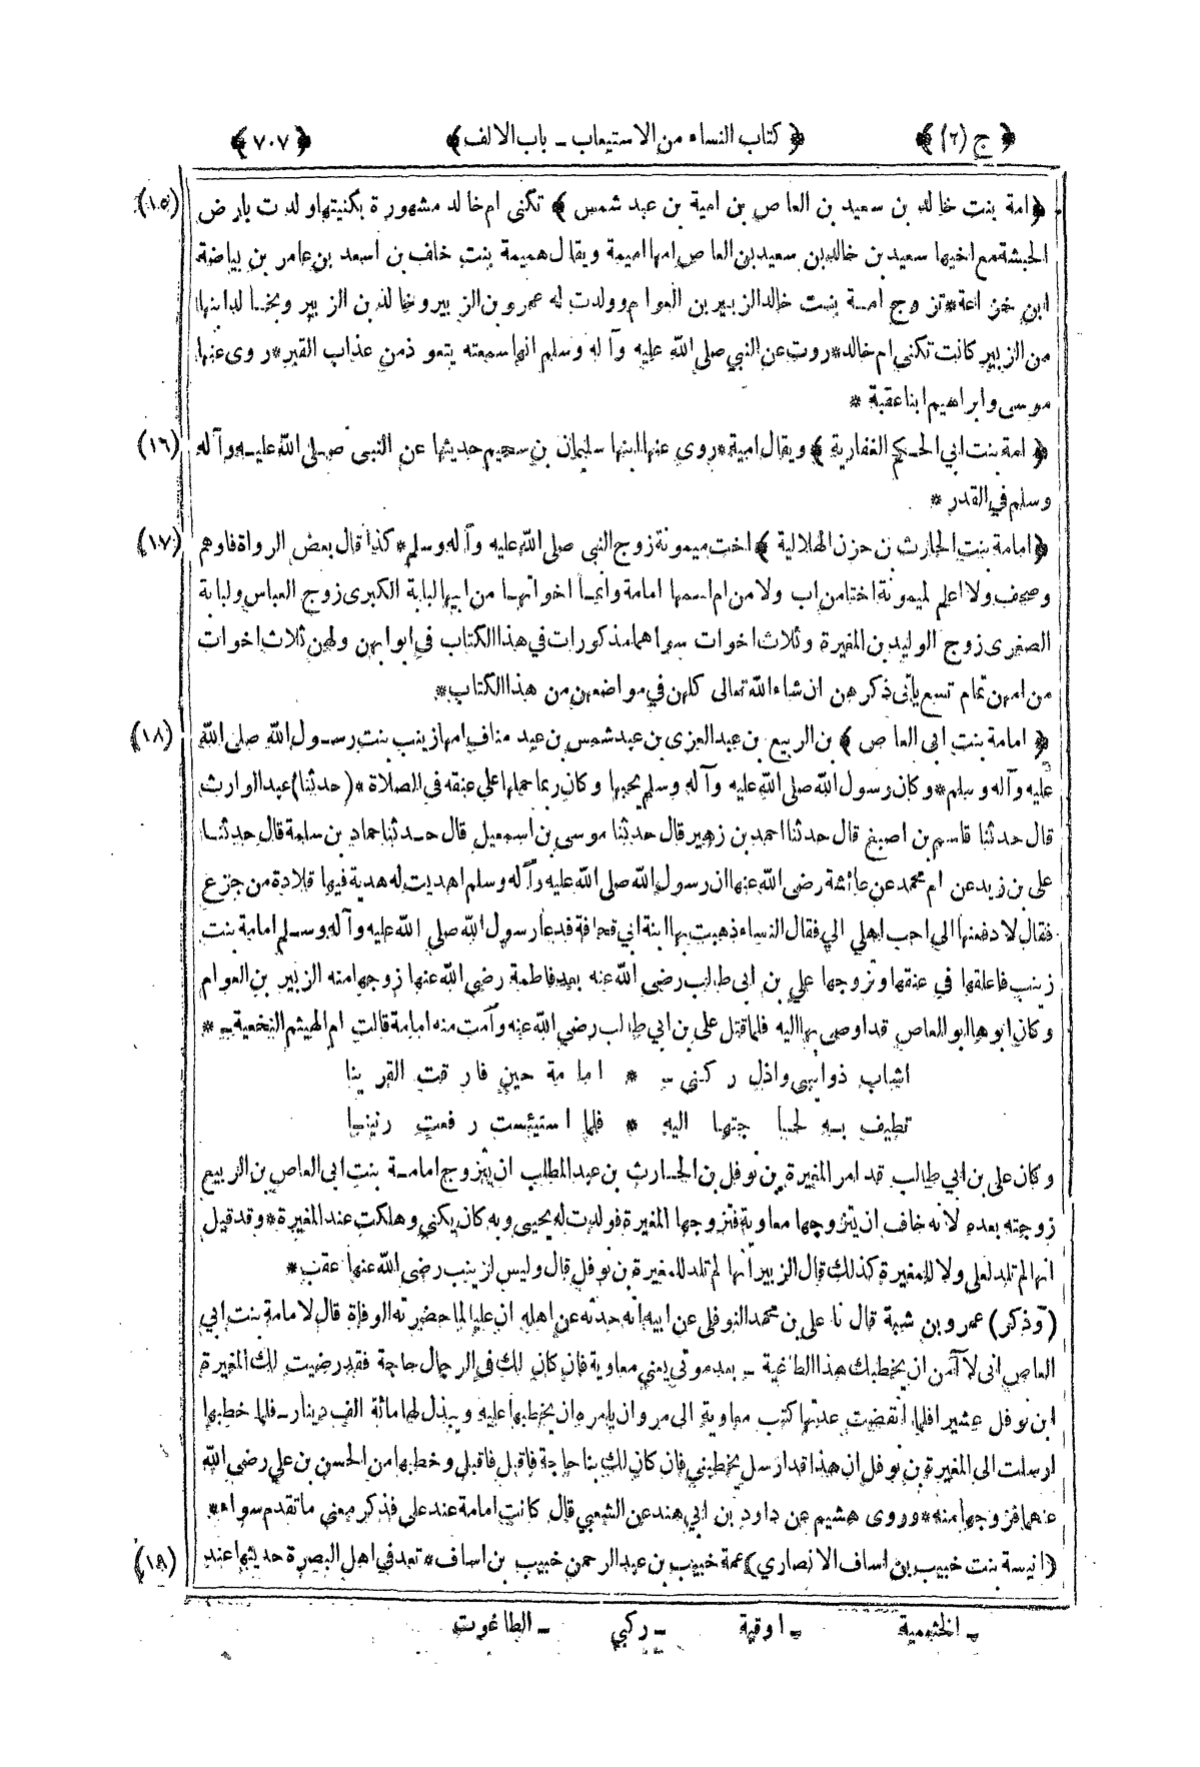 ﴿ج (٢)﴾ ﴿كتاب النساء من الاستيعاب ـ باب الالف﴾ ﴿٧٠٧﴾
﴿امة بنت خالد بن سعيد بن العاص بن امية بن عبد شمس﴾ تكنى ام خالد مشهورة بكنيتها ولدت بارض (١٥)
الحبشة مع اخيها سعيد بن خالد بن سعيد بن العاص امها اميمة ويقال هميمة بنت خلف بن اسعد بن عامر بن بياضة
ابن خزاعة * تزوج امة بنت خالد الزبير بن العوام وولدت له عمرو بن الزبير وخالد بن الزبير وبخالد ابنها
من الزبير كانت تكنى ام خالد * روت عن النبي صلى الله عليه وآله وسلم انها سمعته يتعوذ من عذاب القبر * روى عنها
موسى وابراهيم ابنا عقبة *
﴿امة بنت ابي الحكم الغفارية﴾ ويقال امية * روى عنها ابنها سليمان بن سحيم حديثها عن النبى صلى الله عليه وآله (١٦)
وسلم في القدر *
﴿امامة بنت الحارث بن حزن الهلالية﴾ اخت ميمونة زوج النبى صلى الله عليه وآله وسلم * كذا قال بعض الرواة فاوهم (١٧)
وصحف ولا اعلم لميمونة اختا من اب ولا من ام اسمها امامة وانما اخواتها من ابيها لبابة الكبرى زوج العباس ولبابة
الصغرى زوج الوليد بن المغيرة وثلاث اخوات سواهما مذكورات في هذا الكتاب في ابوابهن ولهن ثلاث اخوات
من امهن تمام تسع يأتى ذكرهن ان شاء الله تعالى كلهن في مواضعهن من هذا الكتاب *
﴿امامة بنت ابى العاص﴾ بن الربيع بن عبد العزى بن عبد شمس بن عبد مناف امها زينب بنت رسول الله صلى الله (١٨)
عليه وآله وسلم * وكان رسول الله صلى الله عليه وآله وسلم يحبها وكان ربما حملها على عنقه فى الصلاة * (حدثنا) عبد الوارث
قال حدثنا قاسم بن اصبغ قال حدثنا احمد بن زهير قال حدثنا موسى بن اسمعيل قال حدثنا حماد بن سلمة قال حدثنا
على بن زيد عن ام محمد عن عائشة رضى الله عنها ان رسول الله صلى الله عليه وآله وسلم اهديت له هدية فيها قلادة من جزع
فقال لا دفعنها الى احب اهلي الي فقال النساء ذهبت بها ابنة ابي قحافة فدعا رسول الله صلى الله عليه وآله وسلم امامة بنت
زينب فاعلقها في عنقها وتزوجها علي بن ابى طالب رضى الله عنه بعد فاطمة رضى الله عنها زوجها منه الزبير بن العوام
وكان ابوها ابو العاص قد اوصى بها اليه فلما قتل على بن ابي طالب رضي الله عنه وآمت منه امامة قالت ام الهيثم النخعية ـ *
اشاب ذوابتي واذل ركنى ـ * امامة حين فارقت القرينا
تطيف به لحاجتها اليه * فلما استيئست رفعت رنينا
وكان على بن ابي طالب قد امر المغيرة بن نوفل بن الحارث بن عبد المطلب ان يتزوج امامة بنت ابى العاص بن الربيع
زوجته بعده لانه خاف ان يتزوجها معاوية فتزوجها المغيرة فولدت له يحيى وبه كان يكنى وهلكت عند المغيرة * وقد قيل
انها لم تلد لعلى ولا للمغيرة كذلك قال الزبير انها لم تلد للمغيرة بن نوفل قال وليس لزينب رضى الله عنها عقب *
(وذكر) عمرو بن شبة قال نا على بن محمد النوفلى عن ابيه انه حدثه عن اهله ان عليا لما حضرته الوفاة قال لامامة بنت ابي
العاص انى لا آمن ان يخطبك هذا الطاغية ـ بعد موتي يعنى معاوية فان كان لك فى الرجال حاجة فقد رضيت لك المغيرة
ابن نوفل عشيرا فلما انقضت عدتها كتب معاوية الى مروان يامره ان يخطبها عليه ويبذل لها مائة الف دينار ـ فلما خطبها
ارسلت الى المغيرة بن نوفل ان هذا قد ارسل يخطبني فان كان لك بنا حاجة فاقبل فاقبل وخطبها من الحسن بن علي رضى الله
عنهما فزوجها منه * وروى هشيم عن داود بن ابي هند عن الشعبي قال كانت امامة عند على فذكر معنى ما تقدم سواء *
(انيسة بنت خبيب بن اساف الانصاري) عمة خبيب بن عبد الرحمن خبيب بن اساف * تعد في اهل البصرة حديثها عند (١٩)
ـ الخثعمية ـ اوقية ـ ركبي ـ الطاغوت